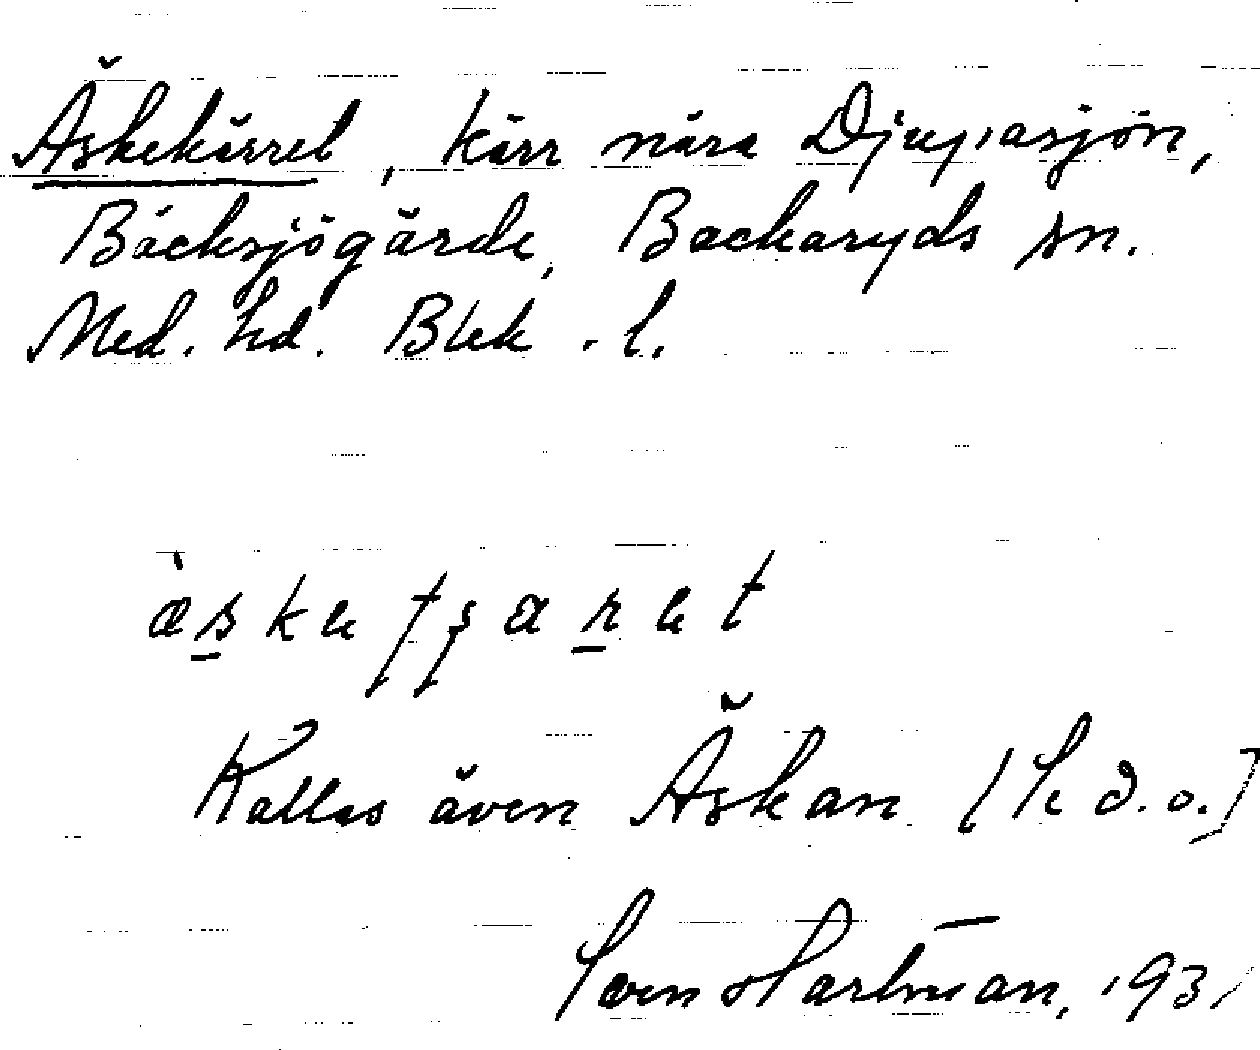 Äskekärret, kärr nära Djupasjön,
Bäcksjögärde, Backaryds sn.
Med. hd. Blek. l.
Kallas även Äskan [Se d.o.]
Sven Hartman, 1931